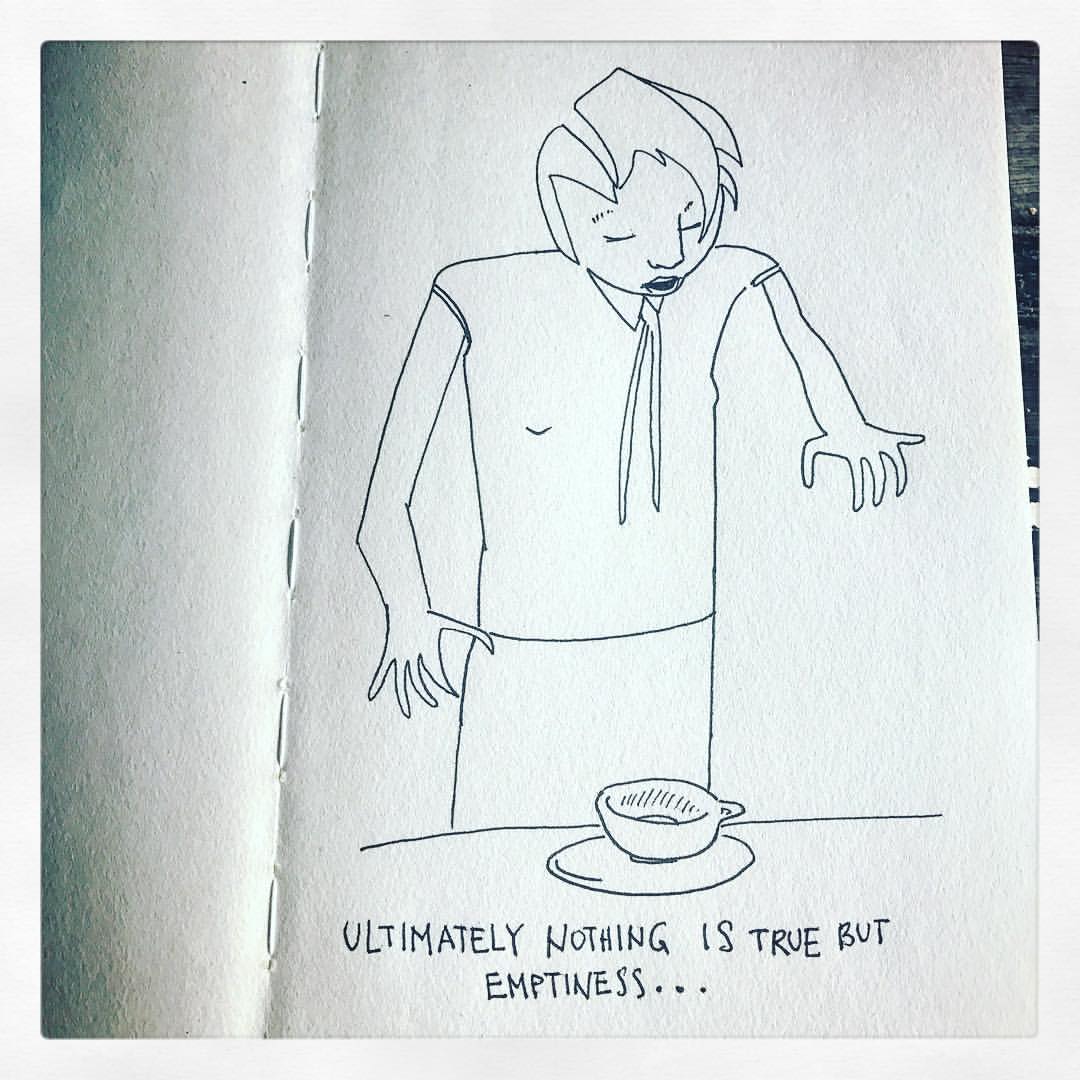 ULTIMATELY NOTHING IS TRUE BUT
EMPTINESS...